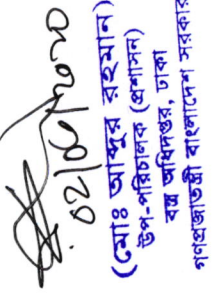 ০২/০৮/২০২০
(মোঃ আব্দুর রহমান)
উপ-পরিচালক (প্রশাসন)
বস্ত্র অধিদপ্তর, ঢাকা
গণপ্রজাতন্ত্রী বাংলাদেশ সরকার